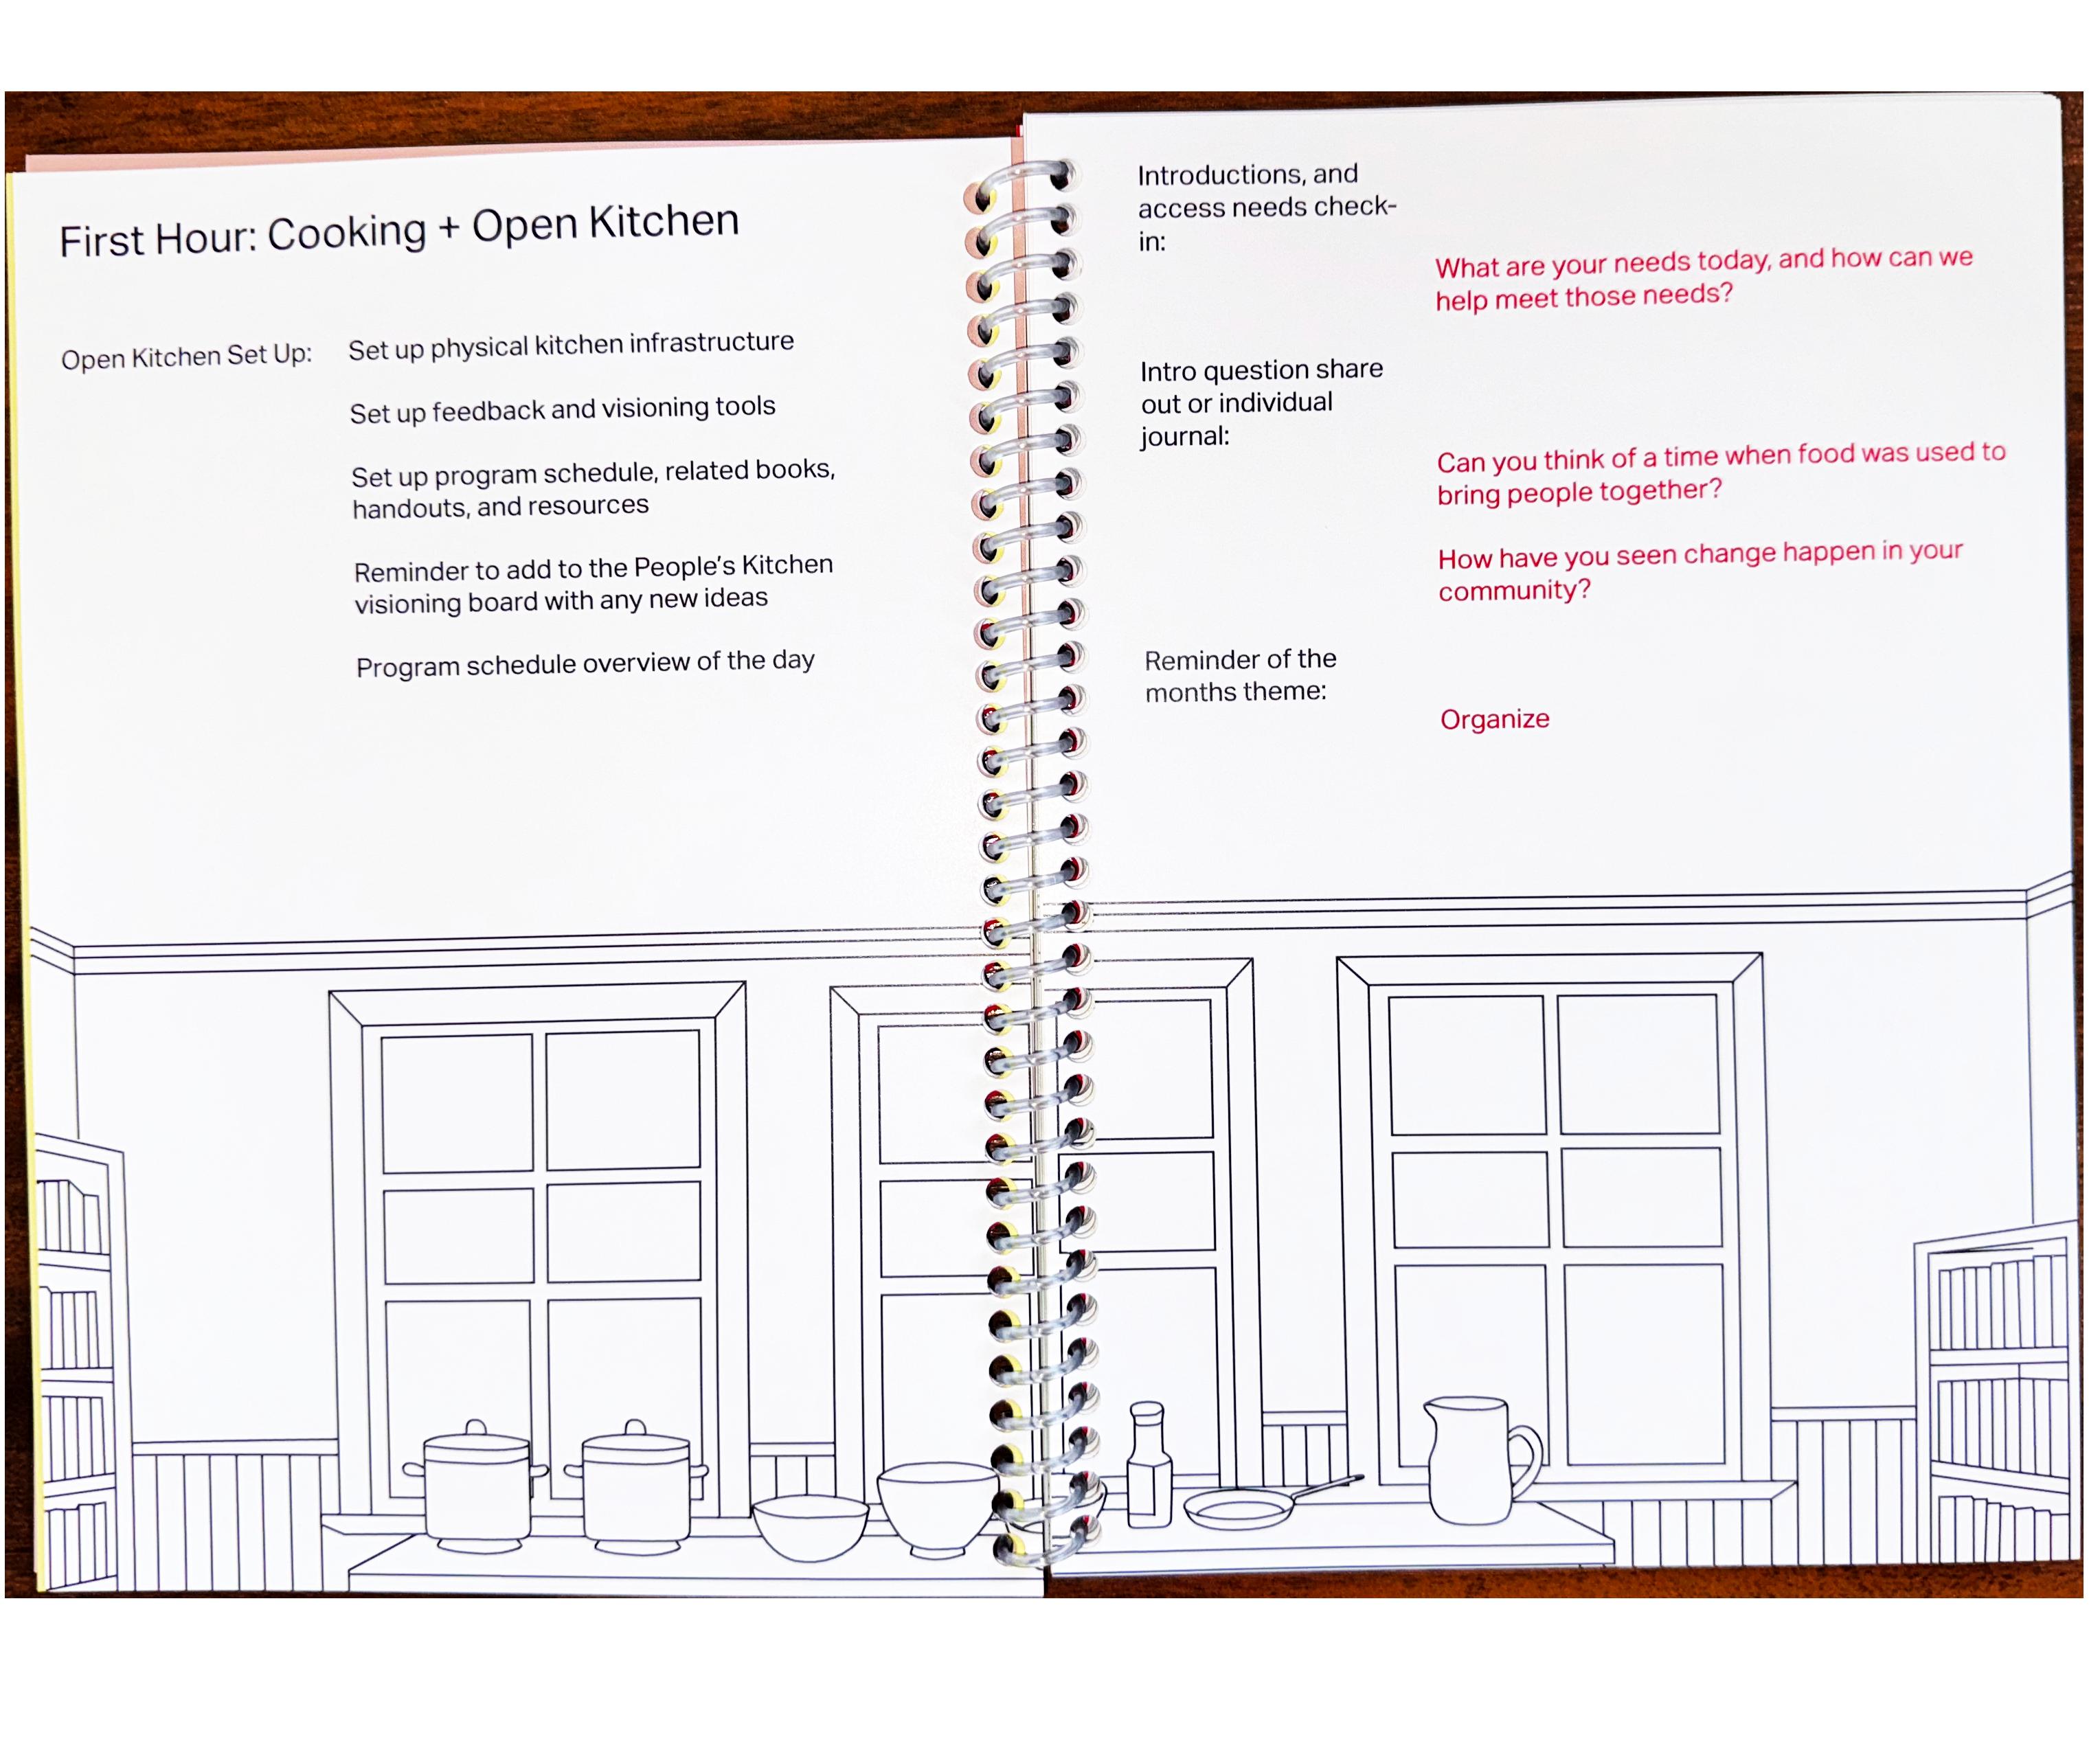 First Hour: Cooking + Open Kitchen
Open Kitchen Set Up:
Set up physical kitchen infrastructure
Set up feedback and visioning tools
Set up program schedule, related books,
handouts, and resources
Reminder to add to the People's Kitchen
visioning board with any new ideas
Program schedule overview of the day
Introductions, and
access needs check-
in:
What are your needs today, and how can we
help meet those needs?
Intro question share
out or individual
journal:
Can you think of a time when food was used to
bring people together?
How have you seen change happen in your
community?
Reminder of the
months theme:
Organize